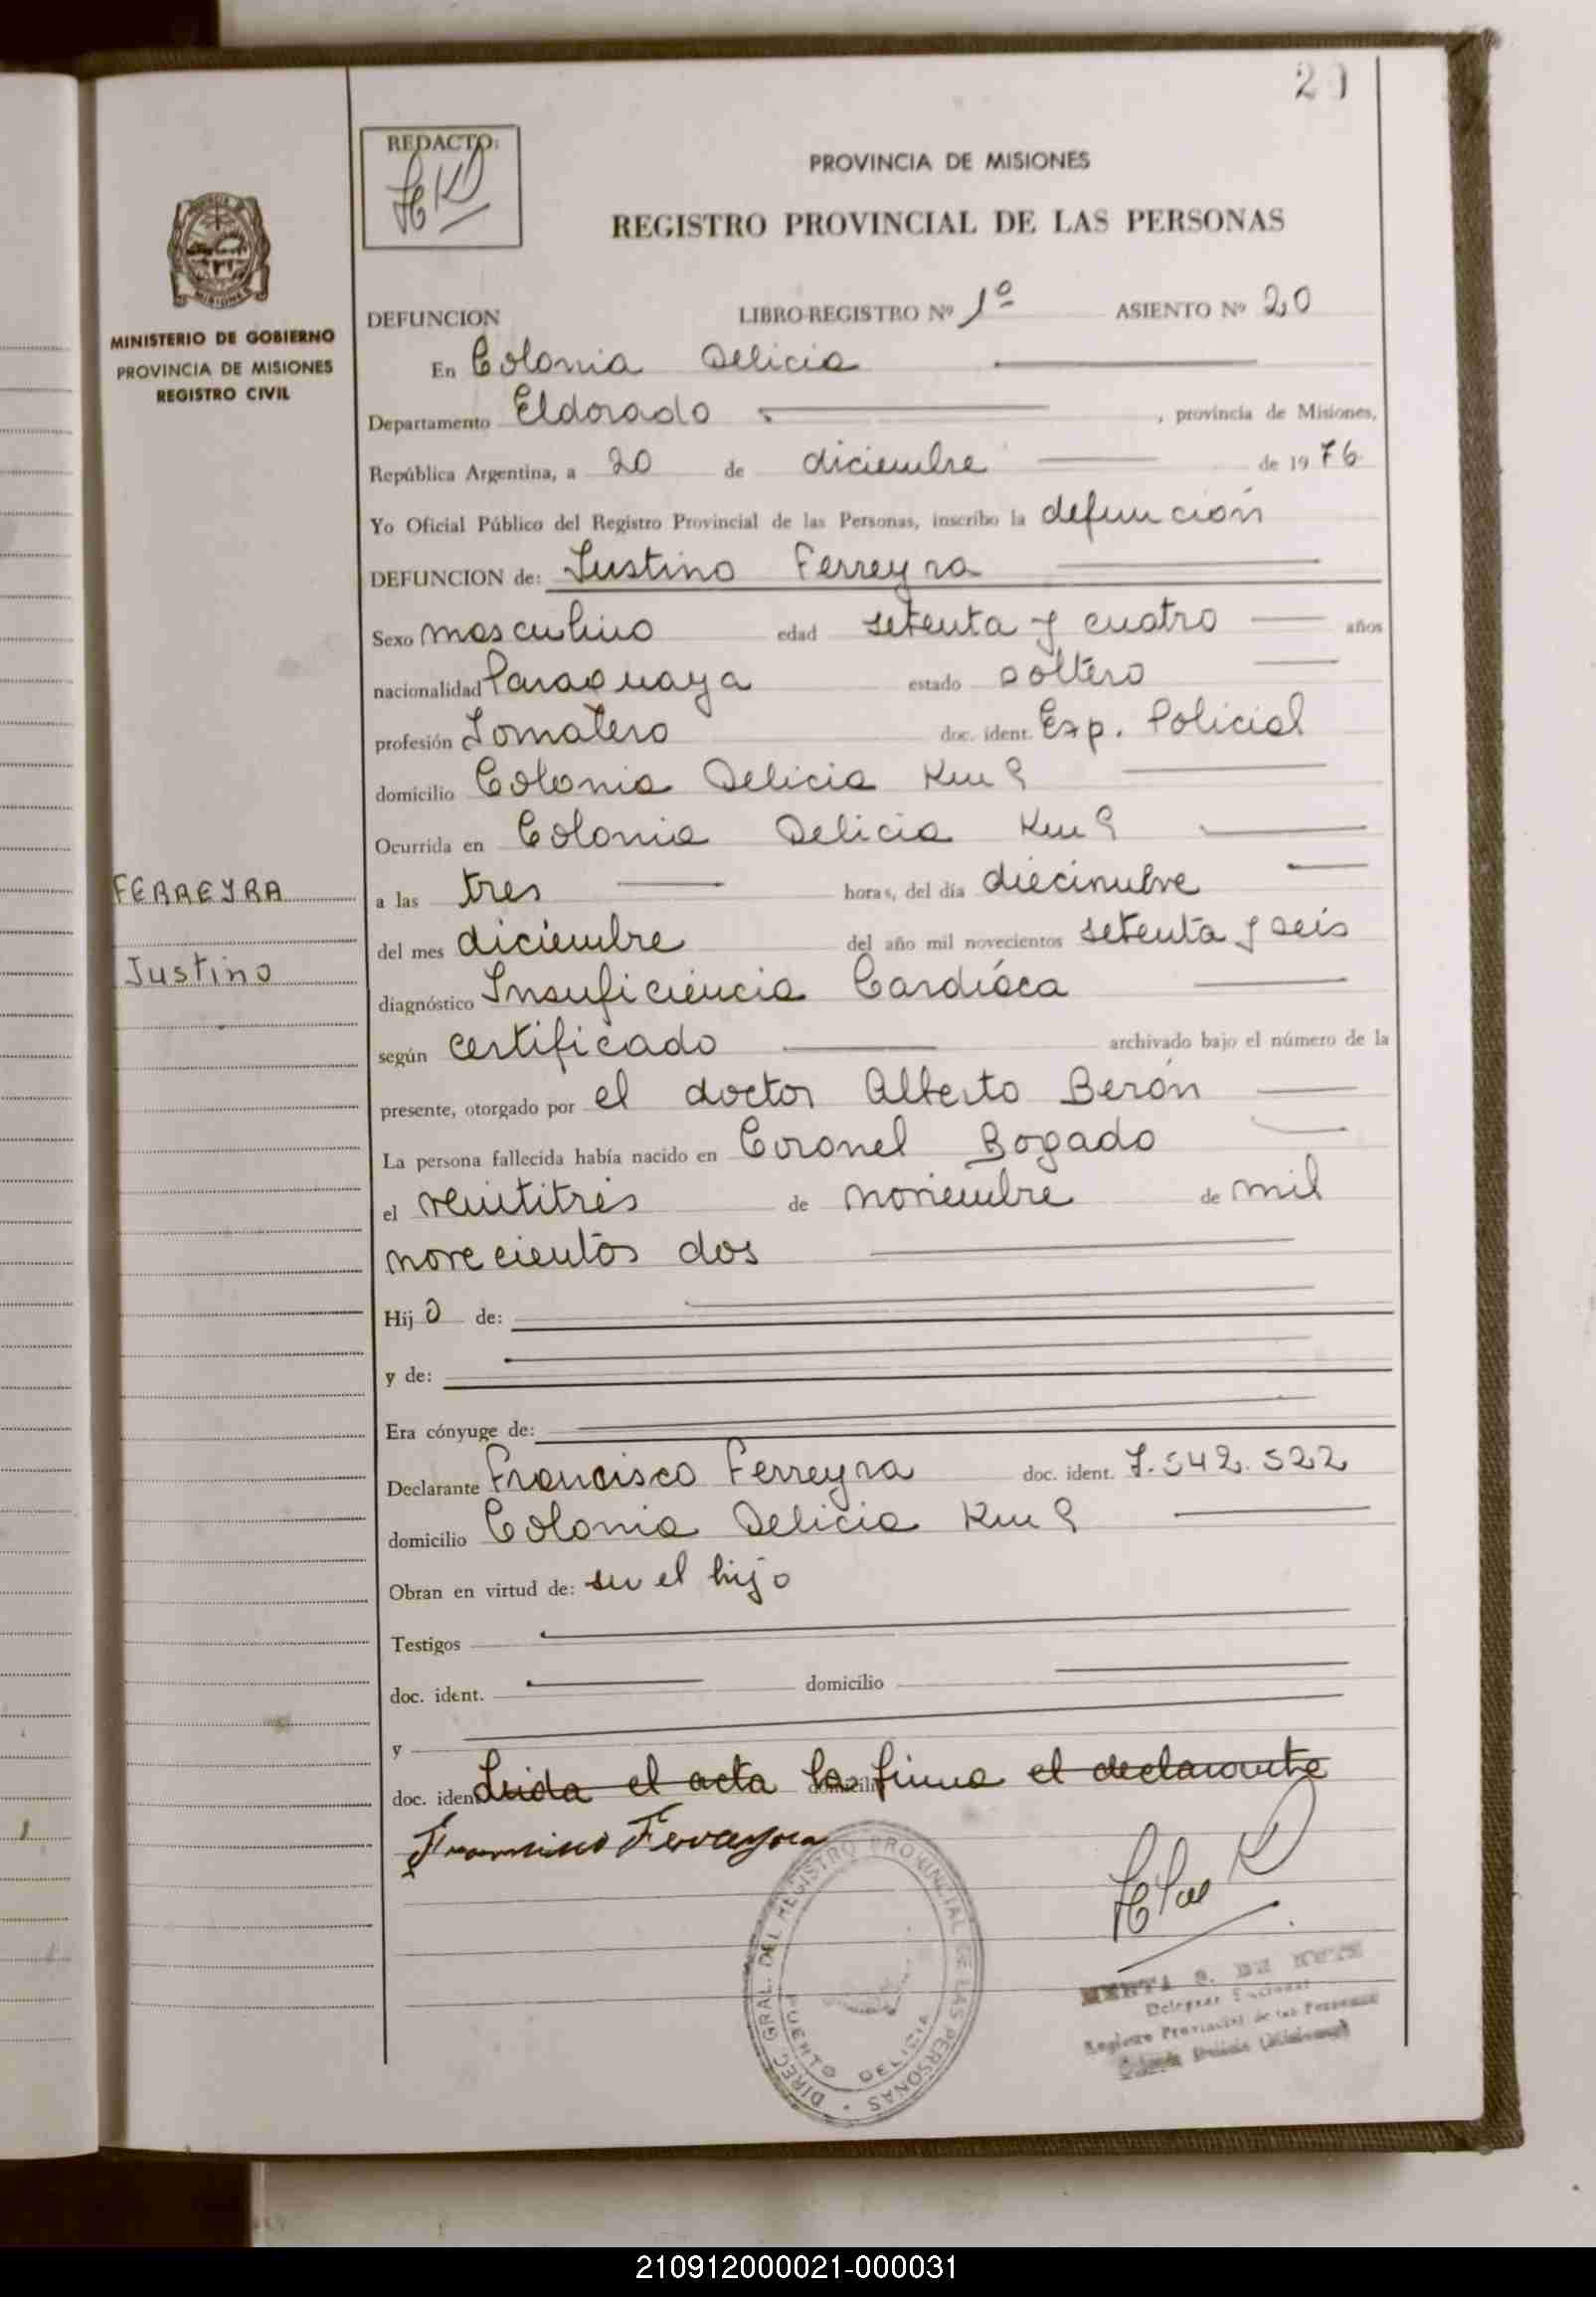 21
REDACTO:
PROVINCIA DE MISIONES
REGISTRO PROVINCIAL DE LAS PERSONAS
MINISTERIO DE GOBIERNO
PROVINCIA DE MISIONES
REGISTRO CIVIL
DEFUNCION LIBRO-REGISTRO Nº 1º ASIENTO Nº 20
En Colonia Delicia
Departamento Eldorado , provincia de Misiones,
República Argentina, a 20 de diciembre de 1976
Yo Oficial Público del Registro Provincial de las Personas, inscribo la defunción
DEFUNCION de: Justino Ferreyra
Sexo masculino edad setenta y cuatro años
nacionalidad Paraguaya estado soltero
profesión Jornalero doc. ident. Exp. Policial
domicilio Colonia Delicia Km 9
Ocurrida en Colonia Delicia Km 9
FERREYRA
Justino
a las tres horas, del día diecinueve
del mes diciembre del año mil novecientos setenta y seis
diagnóstico Insuficiencia Cardíaca
según certificado archivado bajo el número de la
presente, otorgado por el doctor Alberto Berón
La persona fallecida había nacido en Coronel Bogado
el veintitrés de noviembre de mil
novecientos dos
Hijo de:
y de:
Era cónyuge de:
Declarante Francisco Ferreyra doc. ident. 7.542.522
domicilio Colonia Delicia Km 9
Obran en virtud de: ser el hijo
Testigos
doc. ident. domicilio
y
doc. ident. Leida el acta la firma el declarante
Ferreyra
DIREC. GRAL. DEL REGISTRO PROVINCIAL DE LAS PERSONAS
PUERTO DELICIA
Registro Provincial de las Personas
(Misiones)
210912000021-000031